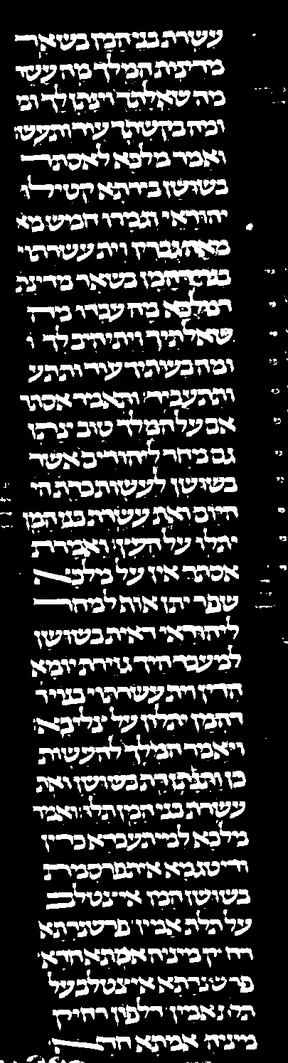 עשרת בני המן בשאר
מדינות המלך מה עשו
מה שאלתך וינתן לך ומ
ומה בקשתך עוד ותעש
ואמר מלכא לאסתר
בשושן בירתא קטילו
יהודאי וגמרו חמש מא
מאה גברין וית עשרתי
בנוי דהמן בשאר מדינת
דמלכא מה עבדו מה
שאלתיך ויתיהיב לך ו
ומה בעותיך עוד ותתע
ותתעביד ותאמר אסתר
אם על המלך טוב ינתן
גם מחר ליהודים אשר
בשושן לעשות כדת הי
היום ואת עשרת בני המן
יתלו על העץ ואמרת
אסתר אין על מלכא
שפר יתן אות למחר
ליהודאי דאית בשושן
למעבד היך גזירת יומא
הדין וית עשרתי בנוי
דהמן יתלון על צליבא
ויאמר המלך להעשות
כן ותנתן דת בשושן ואת
עשרת בני המן תלו ואמר
מלכא למיתעבדא כדין
ודיטגמא איתפרסמית
בשושן המן איצטלב
על תלת אמין פרשנדתא
רחיק מיניה אמתא חדא
פרשנדתא איצטלב על
תלת אמין דלפון רחיק
מיניה אמתא חדא